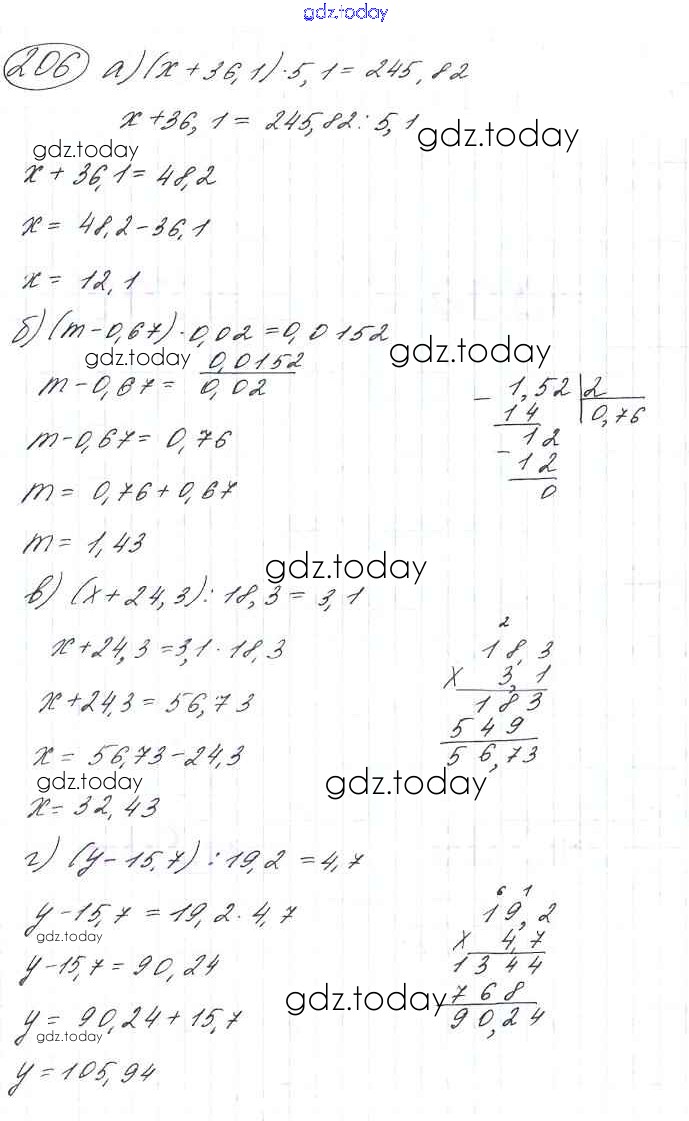 gdz.today
206 а) (x + 36,1) · 5,1 = 245,82
x + 36,1 = 245,82 : 5,1
gdz.today
gdz.today
x + 36,1 = 48,2
x = 48,2 - 36,1
x = 12,1
б) (m - 0,67) · 0,02 = 0,0152
gdz.today
gdz.today
m - 0,67 = 0,0152 / 0,02
m - 0,67 = 0,76
m = 0,76 + 0,67
m = 1,43
- 1,52 | 2
14 0,76
12
- 12
0
gdz.today
в) (x + 24,3) : 18,3 = 3,1
x + 24,3 = 3,1 · 18,3
x + 24,3 = 56,73
x = 56,73 - 24,3
gdz.today
gdz.today
x = 32,43
2
18,3
x 3,1
183
549
56,73
г) (y - 15,7) : 19,2 = 4,7
y - 15,7 = 19,2 · 4,7
gdz.today
y - 15,7 = 90,24
gdz.today
y = 90,24 + 15,7
gdz.today
y = 105,94
6 1
19,2
x 4,7
1344
768
90,24